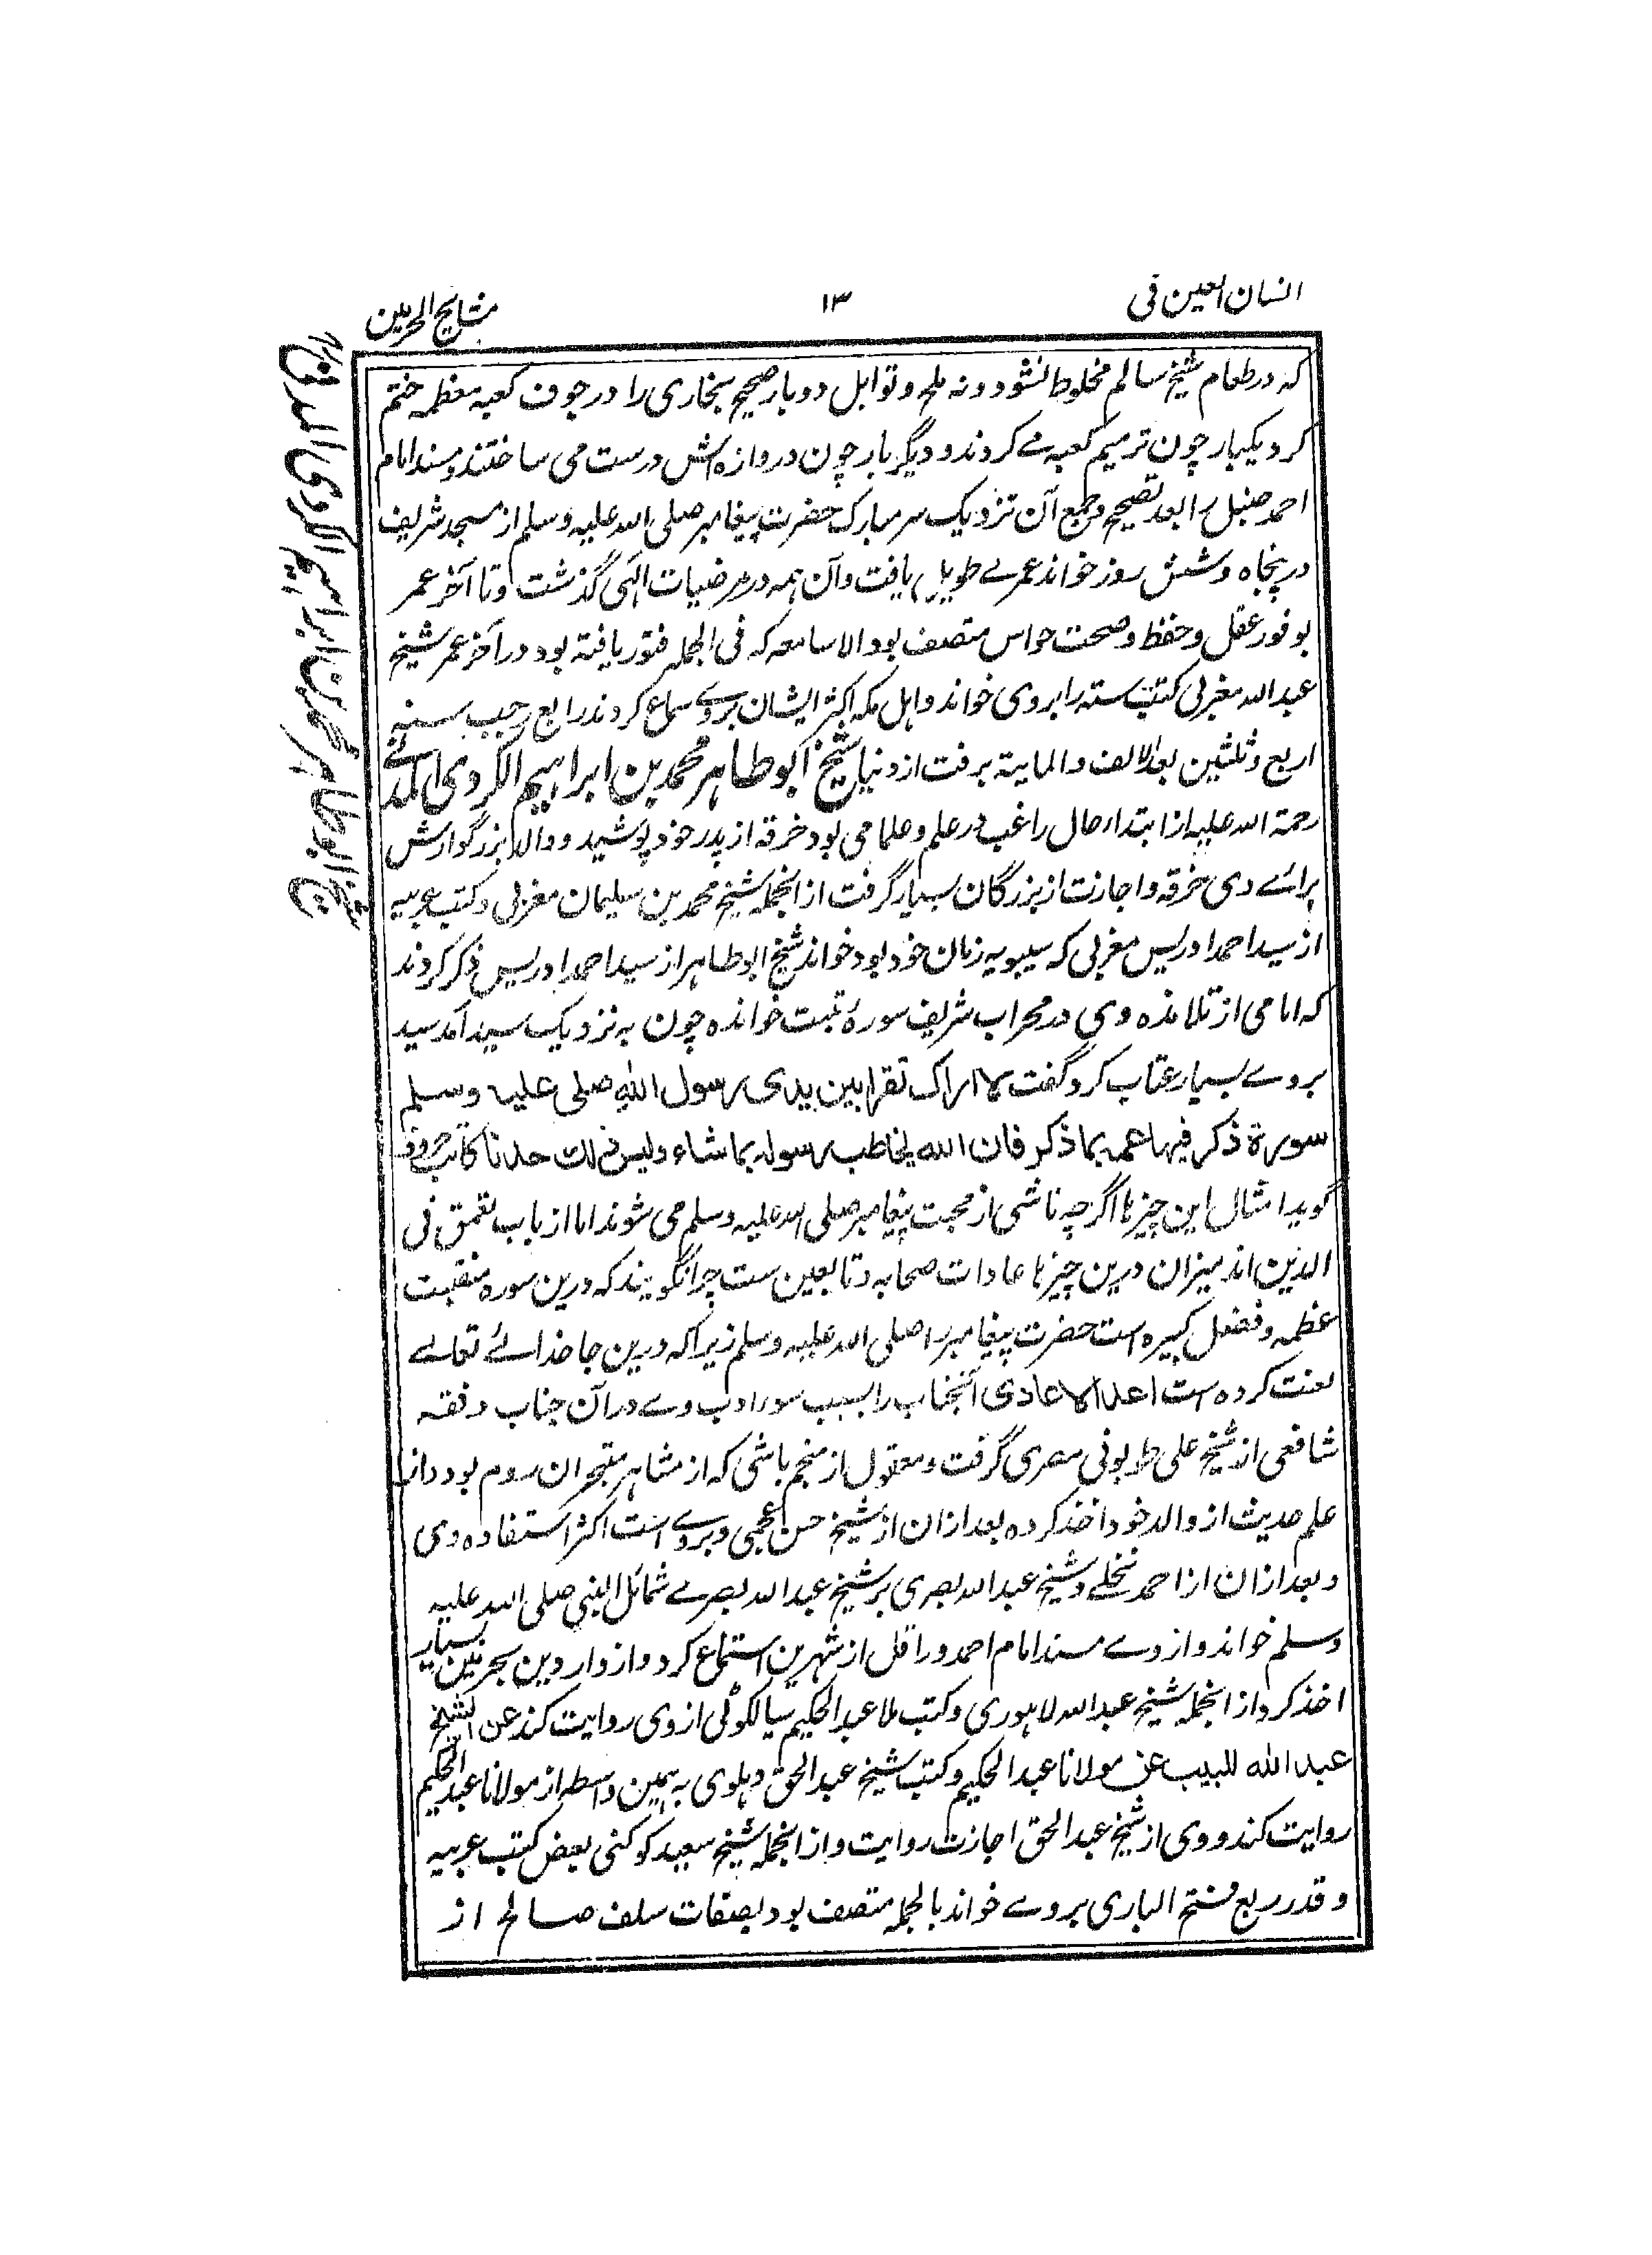 انسان العین فی
۱۳
مشایخ الحرمین
که در طعام شیخ سالم مخلوط نشود و نه ملح و توابل دوبار صحیح بخاری را در جوف کعبه معظمه ختم
کرد یکبار چون ترمیم کعبه مے کردند و دیگر بار چون دروازه اش درست می ساختند و مسند امام
احمد حنبل را بعد تصحیح و جمع آن نزدیک سر مبارک حضرت پیغامبر صلی الله علیه وسلم از مسجد شریف
در پنجاه و شش روز خواند عمرے طویل یافت و آن همه در مرضیات الهی گذشت و تا آخر عمر
بوفور عقل و حفظ و صحت حواس متصف بود الا سامعه که فی الجمله فتور یافته بود در آخر عمر شیخ
عبد الله مغربی کتب سته را بروی خواند و اهل مکه اکثر ایشان بروے سماع کردند رابع رجب سنه
اربع و ثلثین بعد الالف والمایة برفت از دنیا شیخ ابو طاهر محمد بن ابراهیم الکردی المدنے
رحمة الله علیه از ابتداء حال راغب در علم و علما می بود خرقه از پدر خود پوشید و والد بزرگوارش
براے وی خرقه و اجازت از بزرگان بسیار گرفت از انجمله شیخ محمد بن سلیمان مغربی و کتب عربیه
از سید احمد ادریس مغربی که سیبویه زمان خود بود خواند شیخ ابو طاهر از سید احمد ادریس ذکر کردند
که امامی از تلامذه وی در محراب شریف سورۀ تبت خوانده چون به نزدیک سید آمد سید
بروے بسیار عتاب کرد و گفت لا اراک تقرا بین یدی رسول الله صلی علیه وسلم
سورة ذکر فیها عمه بما ذکر فان الله یخاطب رسوله بما شاء ولیس ذلک حدنا کاتب حروف
گوید امثال این چیزها اگرچه ناشی از محبت پیغامبر صلی الله علیه وسلم می شوند اما از باب تعمق فی
الدین اند میزان درین چیزها عادات صحابه و تابعین ست چرا نگویند که درین سوره منقبت
عظمه و فضل کبیره است حضرت پیغامبر را صلی الله علیه وسلم زیرا که درین جا خدائے تعالے
لعنت کرده است اعدا الاعادی آنجناب را بسبب سوء ادب وے در آن جناب و فقه
شافعی از شیخ علی طولونی مصری گرفت و معقول از منجم باشی که از مشاهر متبحران روم بود و از
علم حدیث از والد خود اخذ کرده بعد ازان از شیخ حسن عجمی و بروے است اکثر استفاده وی
و بعد ازان از احمد نخلے و شیخ عبد الله بصری بر شیخ عبد الله بصرے شمائل النبی صلی الله علیه
وسلم خواند و از وے مسند امام احمد در اقل از شهرین استماع کرد و از واردین بحرمین بسیار
اخذ کرد از انجمله شیخ عبد الله لاهوری و کتب ملا عبد الحکیم سیالکوٹی از وی روایت کند عن الشیخ
عبد الله اللبیب عن مولانا عبد الحکیم و کتب شیخ عبد الحق دهلوی به همین واسطه از مولانا عبد الحکیم
روایت کند و وی از شیخ عبد الحق اجازت روایت و از انجمله شیخ سعید کوکنی بعض کتب عربیه
و قدر ربع فتح الباری بروے خواند بالجمله متصف بود بصفات سلف صالح از
شیخ ابو طاهر محمد بن ابراهیم الکردی المدنی